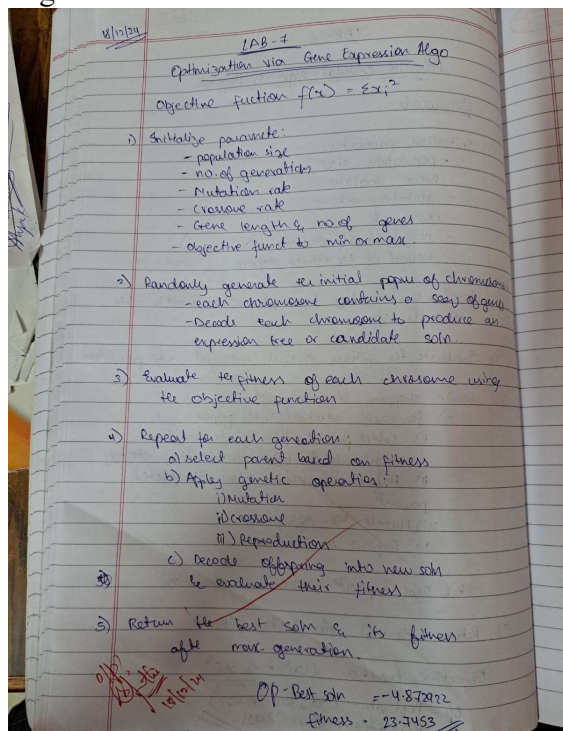 18/12/24
LAB-7
Optimization via Gene Expression Algo
Objective fuction f(x) = Σxi²
1) Initialize paramete:
- population size
- no. of generation
- Mutation rate
- Crossove rate
- Gene length & no of genes
- Objective funct to min or max.
2) Randomly generate the initial popun of chromosome
- each chromosome contains a of genes
- Decode each chromosome to produce an
expression tree or candidate soln.
3) Evaluate the fitness of each chrosome using
the objective function
4) Repeat for each generation:
a) select parent based on fitness
b) Apply genetic operation:
i) Mutation
ii) crossove
iii) Reproduction
c) Decode offspring into new soln
& evaluate their fitness
5) Return the best soln & its fitness
afte max. generation.
O/p - Best soln = -4.872922
fitness = 23.7453
18/12/24